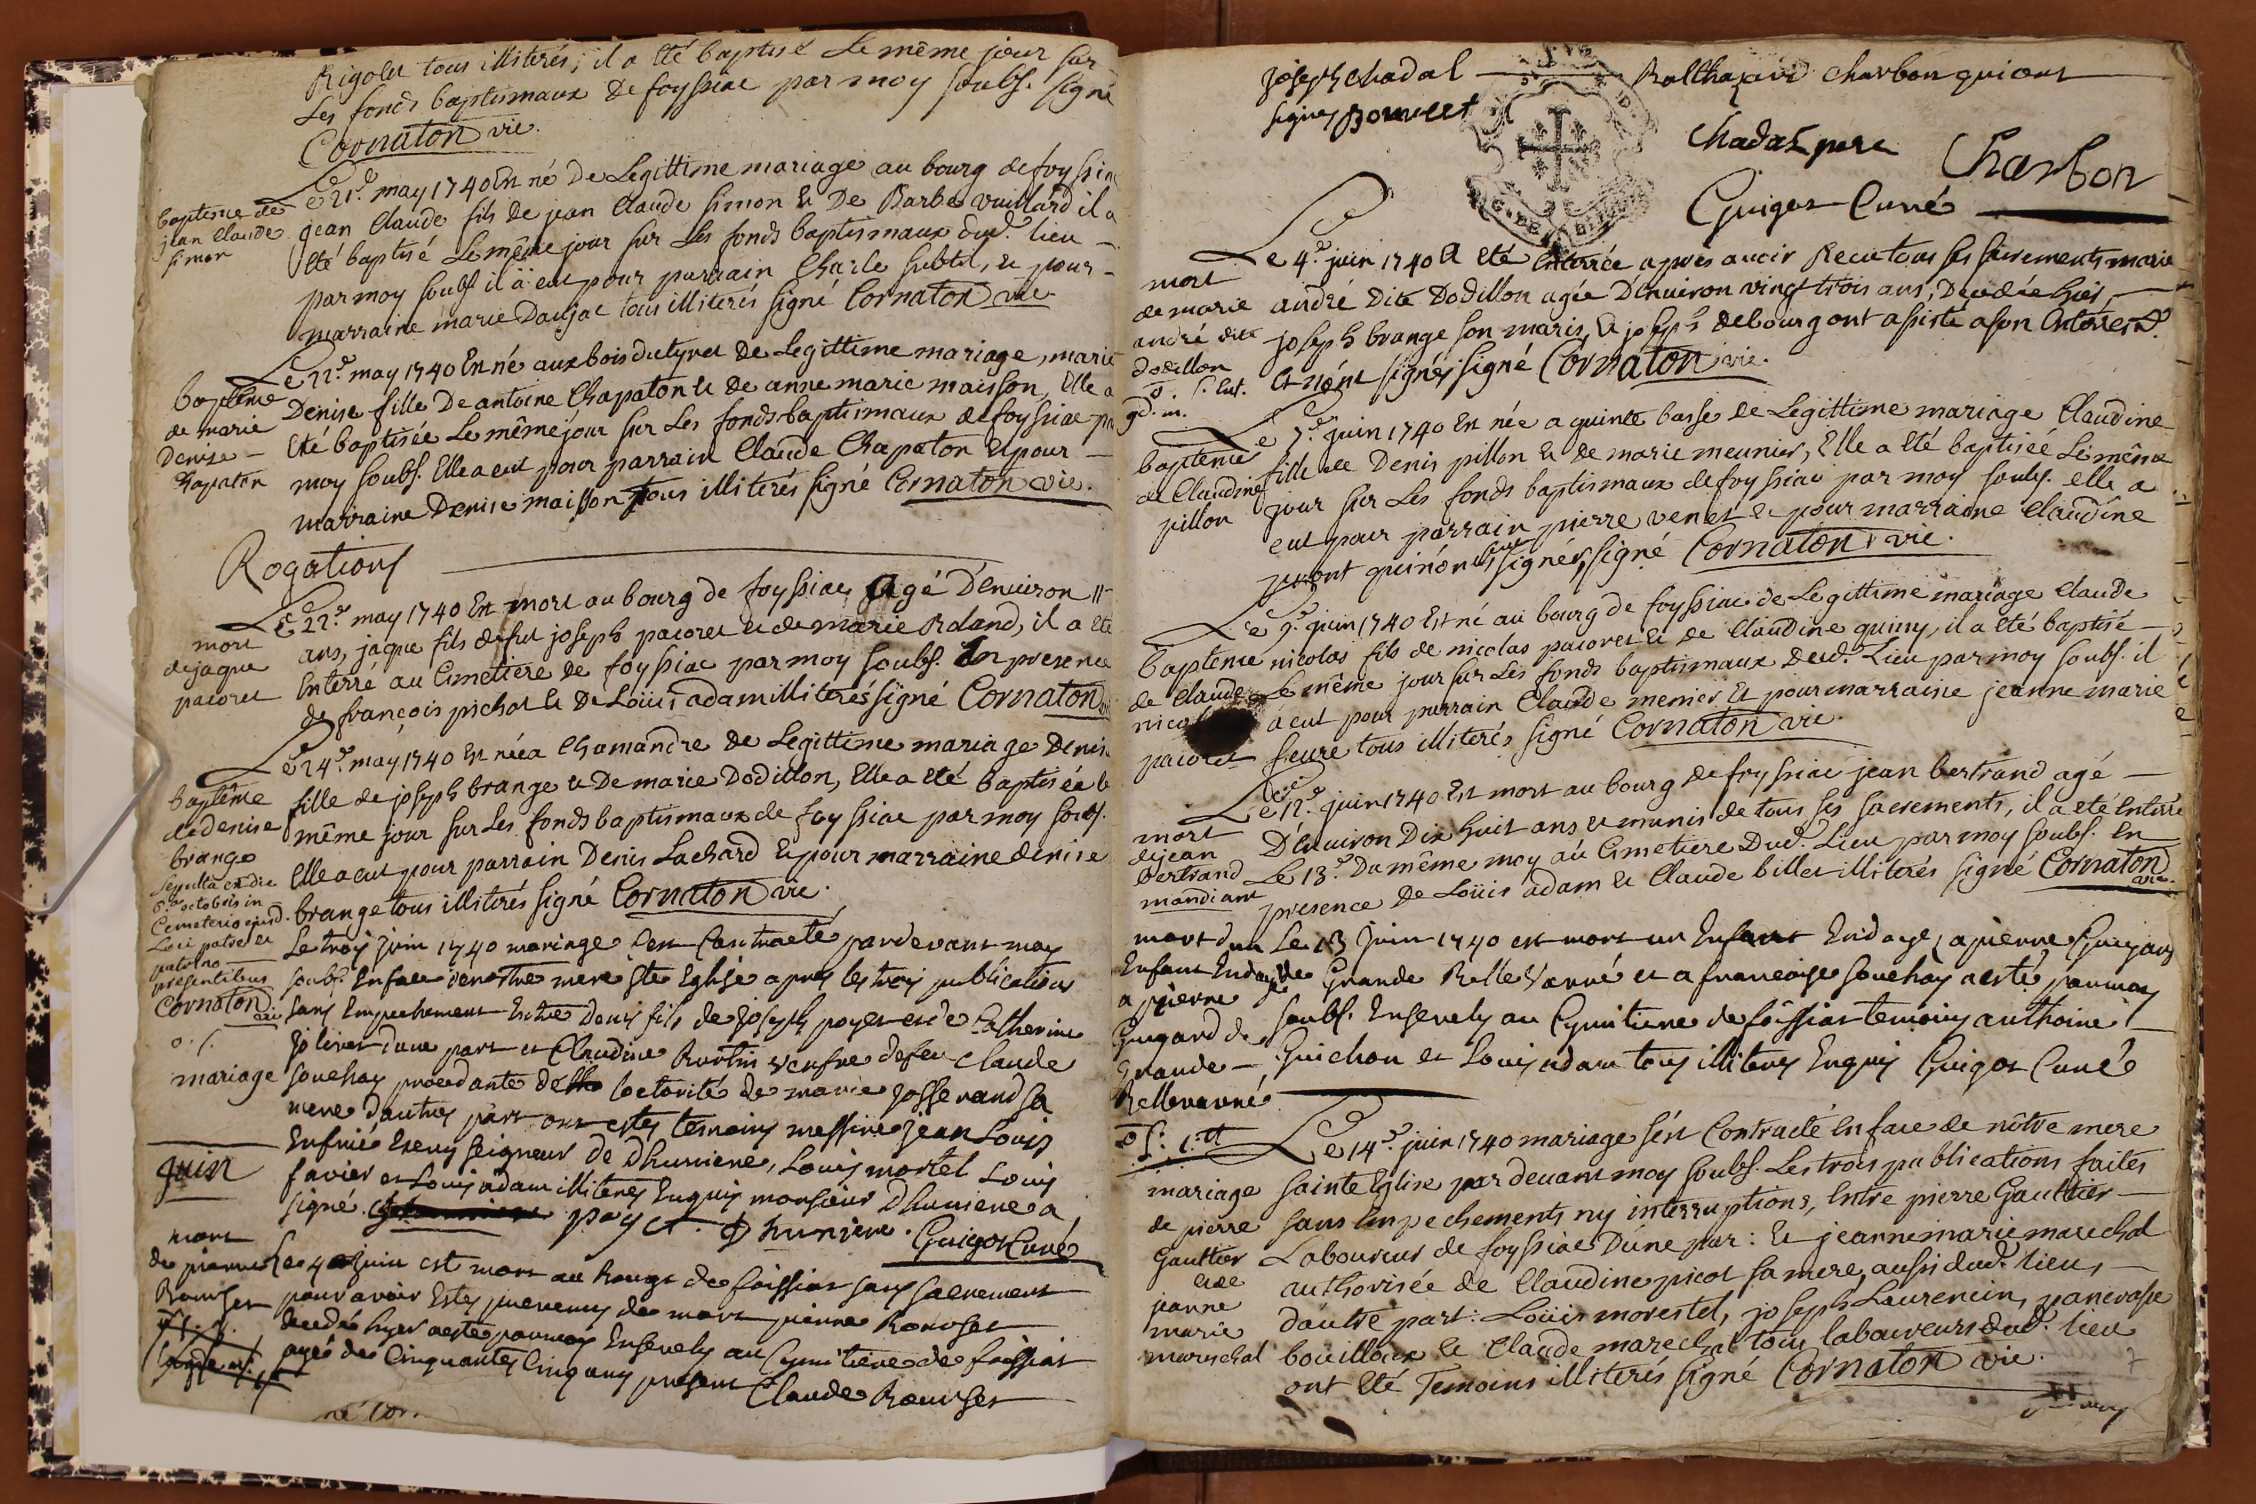 Rigolet tous illiterés, il a eté baptisé le même jour sur
les fonds baptismaux de foyssiac par moy soubs. signé
Cornaton vic.
baptême de
jean claude
simon
Le 21.e may 1740 est né de Legittime mariage au bourg de foyssiac
jean claude fils de jean claude simon et de Barbe vuillard il a
eté baptisé le même jour sur les fonds baptismaux dud. lieu
par moy soubs. il a eut pour parrain Charle subtil, et pour
marraine marie Daujat tous illiterés signé Cornaton vic.
baptême
de marie
Denise
Chapaton
Le 22.e may 1740 est né aux bois du tyret de Legittime mariage, marie
Denise fille de antoine Chapaton et de anne marie maisson, elle a
eté baptisée le même jour sur les fonds baptismaux de foyssiac par
moy soubs. elle a eut pour parrain Claude Chapaton et pour
marraine Denise maisson tous illiterés signé Cornaton vic.
Rogations
mort
de jaque
pacoret
Le 22.e may 1740 est mort au bourg de foyssiac agé d'environ 11
ans, jaque fils de fut joseph pacoret et de marie Roland, il a eté
enterré au cimetiere de foyssiac par moy soubs. en presence
de françois pichot et de Loüis adam illiterés signé Cornaton
baptême
de denise
brange
sepulta est die
8.a octobris in
Cemeterio ejusd.
Loci patre et
patrino
presentibus
Cornaton
vic
Le 24.e may 1740 est née a Chamandre de Legittime mariage Denise
fille de joseph brange et de marie Dodillon, elle a eté baptisée le
même jour sur les fonds baptismaux de foyssiac par moy soubs.
elle a eut pour parrain Denis Lachard et pour marraine denise
brange tous illiterés signé Cornaton vic.
mariage
Le troy juin 1740 mariage s'est Contracté pardevant moy
soubs. enface de nostre mere ste Eglise apres les troy publications
sans Empechement Entre Denis fils de joseph poyet et de Catherine
jolivet d'une part et Claudine Burtin veufve de feu Claude
souchay procedante de lotorité de marie josserand sa
mere d'autres part ont estes temoins messire jean Louis
Seigneur de Dhumiere, Louis mortel Louis
favier et Louis adam illiteres Enquis monsieur Dhumiere a
signé. poyet. Dhumiere. Guigot Curé
juin
mort
de pierre
Rourset
Le 4 juin est mort au bourg de foissiat sans sacrement
pour avoir Estes prevenus de mort pierre Rourset
decedé hyer a esté parmoy Ensevely au Cymitiere de foissiat
agé de Cinquantes Cinq ans present Claude Rourset
joseph chadal Balthazard charbon qui ont
signes Bonnet
chadal pere
Charbon
Guigot Curé
mort
de marie
andré dite
Dodillon
Le 4.e juin 1740 a eté enterrée apres avoir Recu tous ses sacrements marie
andré Dite Dodillon agée D'environ vingt trois ans, Decedée hier
joseph brange son maris, et joseph debourg ont assisté a son enterrem.t
et n'ont signés signé Cornaton vic.
baptême
de Claudine
pillon
Le 7.e juin 1740 est née a quinte basse de Legittime mariage Claudine
fille de Denis pillon et de marie meunier, Elle a eté baptisée le même
jour sur les fonds baptismaux de foyssiac par moy soubs. elle a
eut pour parrain pierre venet et pour marraine Claudine
qui n'ont signés, signé Cornaton vic.
baptême
de Claude
pacoret
Le 9.e juin 1740 est né au bourg de foyssiac de Legittime mariage Claude
nicolas fils de nicolas pacoret et de Claudine quiny, il a eté baptisé
Le même jour sur les fonds baptismaux dud. Lieu par moy soubs. il
a eut pour parrain Claude menier et pour marraine jeanne marie
feure tous illiterés signé Cornaton vic.
mort
de jean
bertrand
mandiant
Le 12.e juin 1740 est mort au bourg de foyssiac jean bertrand agé
D'environ Dix huit ans et munis de tous ses sacrements, il a eté enterré
Le 13.e Du même moy au Cimetiere Dud. Lieu par moy soubs. en
presence de Loüis adam et Claude billet illiterés signé Cornaton
vic.
mort dun
Enfant Endoyé
a pierre
Gugard de
Grande
Rellevarné
Le 13 juin 1740 est mort un Enfant Endoyé a pierre
de Grande Rellevarné et a francoise souchay a esté parmoy
soubs. Ensevely au Cymitiere de foissiat temoins anthoine
Guichon et Louis adam tous illiteres Enquis Guigot Curé
mariage
de pierre
Gauttier
et de
jeanne
marie
mareschal
Le 14.e juin 1740 mariage s'est Contracté en face de nôtre mere
sainte Eglise par devant moy soubs. Les trois publications faites
sans empechements ny interruptions, Entre pierre Gauttier
Laboureur de foyssiac D'une par: et jeanne marie marechal
authorisée de Claudine picot sa mere, aussi dud. lieu,
d'autre part: Loüis morestel, joseph Laurencin, pancrasse
bouilloux et Claude marechal tous laboureurs dud. lieu
ont eté Temoins illiterés signé Cornaton vic.